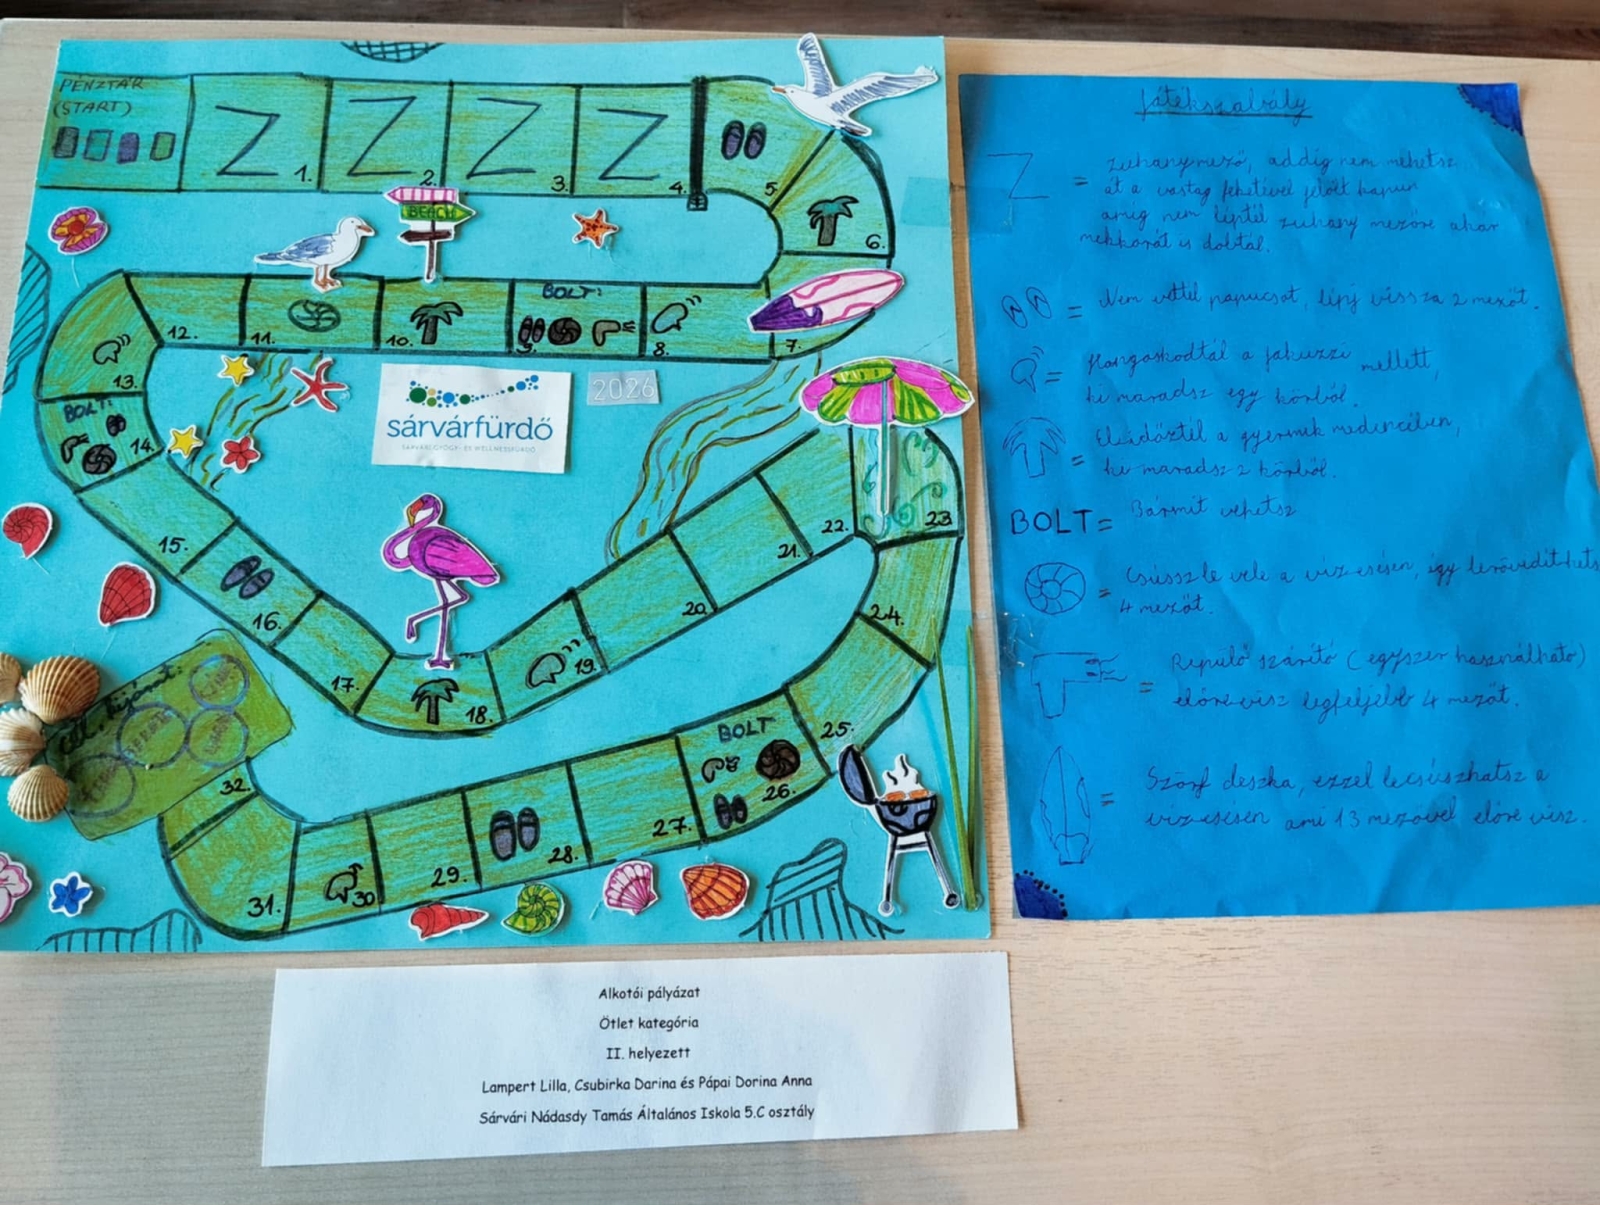 PÉNZTÁR
(START)
Z
1.
Z
2.
Z
3.
Z
4.
5.
6.
7.
8.
BOLT:
9.
10.
11.
12.
13.
BOLT:
14.
15.
16.
17.
18.
19.
20.
21.
22.
23.
24.
25.
BOLT
26.
27.
28.
29.
30
31.
32.
Cél, kijárat:
BEACH
sárvárfürdő
SÁRVÁRI GYÓGY- ÉS WELLNESSFÜRDŐ
2026
Játékszabály
Z = zuhanymező, addig nem mehetsz
át a vastag feketével jelölt kapun
amíg nem léptél zuhany mezőre akár
mekkorát is dobtál.
= Nem vettél papucsot, lépj vissza 2 mezőt.
= Hangoskodtál a jakuzzi mellett,
ki maradsz egy körből.
= Elidőztél a gyermek medencében,
ki maradsz 2 körből.
BOLT = Bármit vehetsz
= Csússz le vele a vízesésen, így lerövidíthetsz
4 mezőt.
= Repülő szárító (egyszer használható)
előre visz legfeljebb 4 mezőt.
= Szörf deszka, ezzel lecsúszhatsz a
vízesésen ami 13 mezővel előre visz.
Alkotói pályázat
Ötlet kategória
II. helyezett
Lampert Lilla, Csubirka Darina és Pápai Dorina Anna
Sárvári Nádasdy Tamás Általános Iskola 5.C osztály